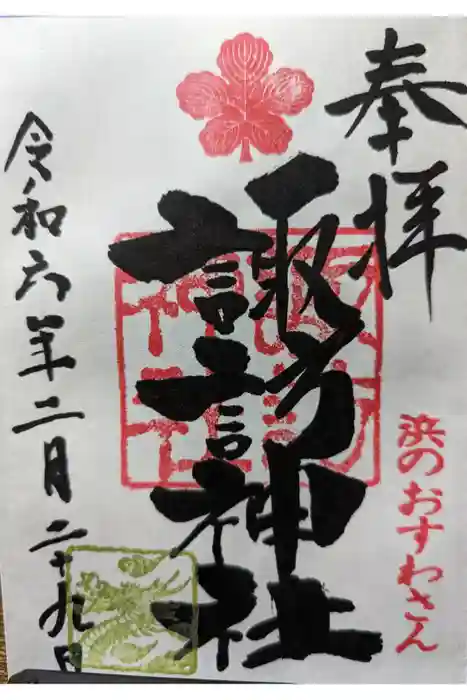 奉拝
諏訪神社
浜のおすわさん
令和六年二月二十九日